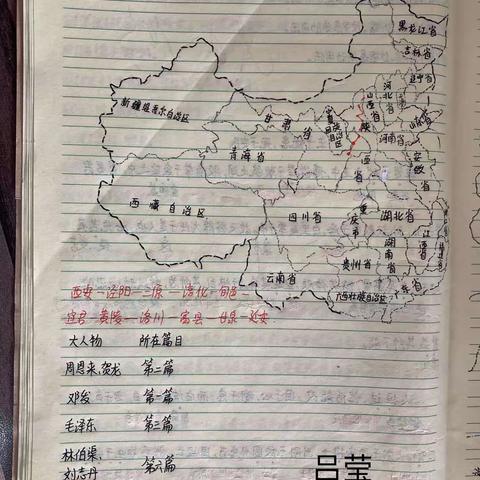 黑龙江省
吉林省
辽宁省
新疆维吾尔自治区
甘肃省
河北省
山西省
山东省
宁夏回族自治区
陕西省
河南省
青海省
安徽省
西藏自治区
四川省
重庆市
湖北省
湖南省
江西省
贵州省
云南省
广西壮族自治区
广东省
西安—泾阳—三原—淳化—旬邑—
宜君—黄陵—洛川—富县—甘泉—延安
大人物 所在篇目
周恩来、贺龙 第二篇
邓发 第一篇
毛泽东 第三篇
林伯渠、
刘志丹 第六篇
吕莹